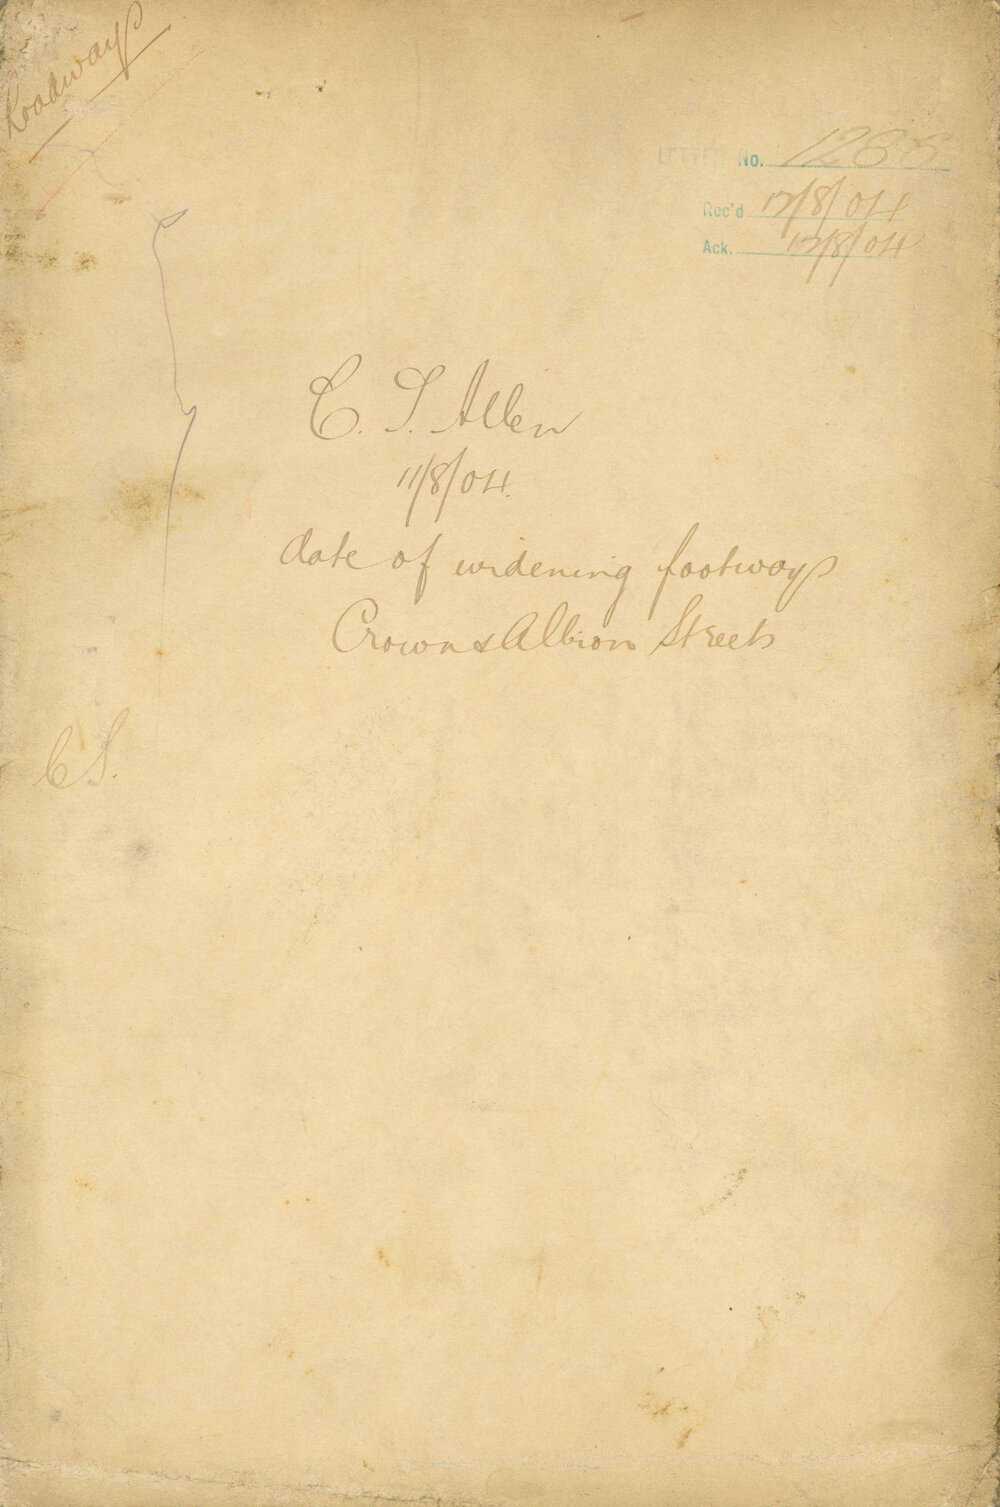 Roadways
LETTER No. 1266
Rec'd 12/8/04
Ack. 12/8/04
C. S. Allen
11/8/04.
date of widening footways
Crown & Albion Streets
CS.